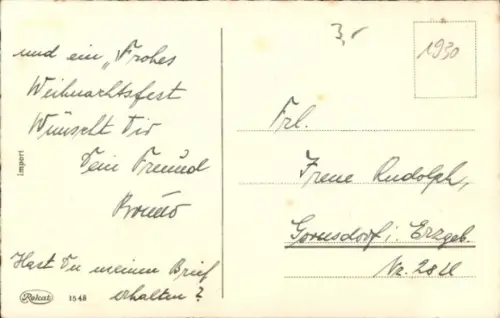 und ein „Frohes
Weihnachtsfest
Wünscht Dir
Dein Freund
Bruno
Hast Du meinen Brief
erhalten?
Import
Rekat
1548
3,-
1930
Frl.
Irene Rudolph,
Gornsdorf i. Erzgeb.
Nr. 28